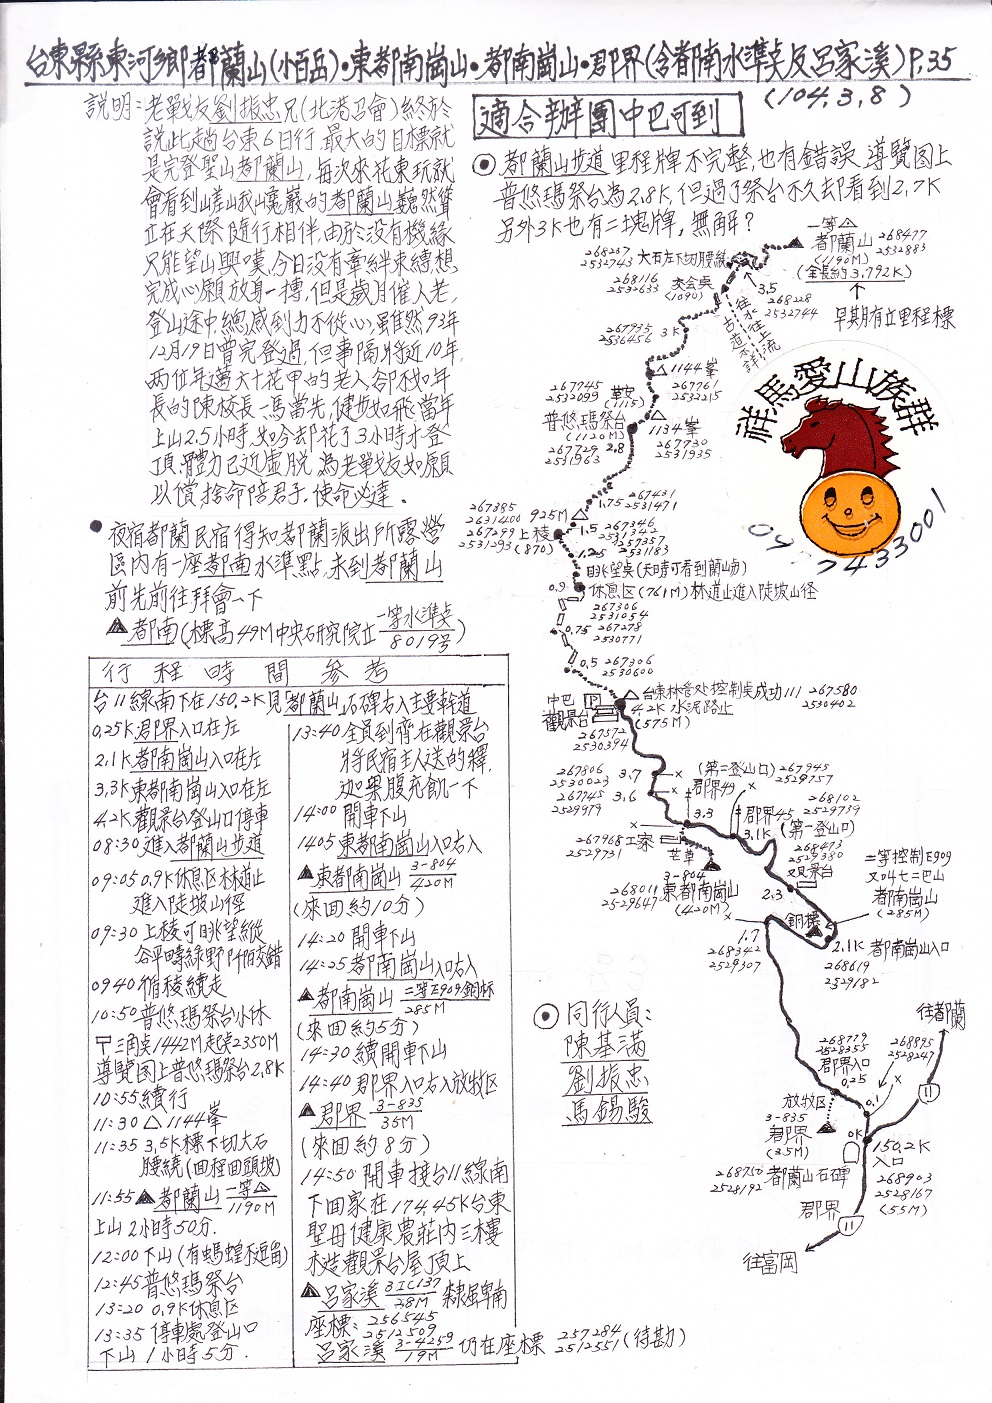 台東縣東河鄉都蘭山(小百岳)·東都南崗山·都南崗山·郡界(含都南水準點及呂家溪)P.35
(104,3,8)
說明:老戰友劉振忠兄(北港召會)終於
說此趟台東6日行,最大的目標就
是完登聖山都蘭山,每次來花東玩就
會看到山嵯峨山巍巖的都蘭山巍然聳
立在天際,隨行相伴,由於没有機緣
只能望山興嘆,今日没有牽絆束縛,想
完成心願放身一搏,但是歲月催人老,
登山途中總感到力不從心,雖然93年
12月19日曾完登過,但事隔將近10年,
兩位年邁六十花甲的老人,卻不如年
長的陳校長一馬當先,健步如飛,當年
上山2.5小時,如今却花了3小時才登
頂,體力已近虛脫,為老戰友如願
以償,捨命陪君子,使命必達.
●夜宿都蘭民宿得知都蘭派出所露營
區內有一座都南水準點,未到都蘭山
前先前往拜會一下
都南(標高49M中央研究院立一等水準點8019号)
適合辦團中巴可到
⊙都蘭山步道里程牌不完整,也有錯誤,導覽図上
普悠瑪祭台為2.8K,但過了祭台不久却看到2.7K
另外3K也有二塊牌,無解?
一等△
都蘭山 268477
2532883
(1190M)
(全長約3.792K)
早期有立里程標
268237
2532743 大石左下切腰繞
3.5
268228
2532744
268116
2532633 交会點
(1090)
往水往上流
古道不詳
267935
2536456 3K
1144峯
267761
2532215
267745
2532099 鞍
(1115)
普悠瑪祭台
(1120M)
267729 2.8
2531963
1134峯
267730
2531935
1.75 267431
2531471
267385
2631400 925M
267299 上稜
2531293 (870)
1.5 267346
2531342
1.25 257357
2531183
眺望點(天晴可看到蘭山島)
0.9 休息区(761M)林道止進入陡坡山徑
267306
2531054
0.75 267278
2530771
0.5 267306
2530600
中巴 P
觀景台
台東林管处控制點成功111 267580
2530402
4.2K 水泥路止
(575M)
267572
2530394
267806
2530023 3.7
267745 3.6
2529979
(第二登山口) 267945
2529757
郡界49
3.3
郡界45
268102
2529739
3.1K (第一登山口)
267968 工寮
2529731
芒草
3-804
268011 東都南崗山
2529647 (420M)
268473
2529380
观景台
2.3
二等控制E909
又叫七二巴山
都南崗山
(285M)
銅標
1.7
268342
2529307
2.1K 都南崗山入口
268619
2529182
往都蘭
268779
2528355
郡界入口
0.25
268895
2529247
0.1
放牧区
3-835
郡界
(35M)
11
0K 150.2K
入口
268750 都蘭山石碑
2528192
268903
2528167
(55M)
郡界
11
往富岡
祥馬愛山族群
⊙同行人員:
陳基滿
劉振忠
馬錫駿
行程時間參考
台11線南下在150.2K見都蘭山石碑右入主要幹道
0.25K郡界入口在左
2.1K都南崗山入口在左
3.3K東都南崗山入口在左
4.2K觀景台登山口停車
08:30進入都蘭山步道
09:05 0.9K休息区林道止
進入陡坡山徑
09:30上稜可眺望縱
谷平疇綠野阡陌交錯
0940循稜續走
10:50普悠瑪祭台小休
三角點1442M起點2350M
導覽図上普悠瑪祭台2.8K
10:55續行
11:30△1144峯
11:35 3.5K標下切大石
腰繞(回程回頭坡)
11:55都蘭山 一等△ 1190M
上山2小時50分.
12:00下山(有螞蝗不逗留)
12:45普悠瑪祭台
13:20 0.9K休息区
13:35停車處登山口
下山1小時5分.
13:40全員到齊在觀景台
將民宿主人送的釋
迦果腹充飢一下
14:00開車下山
1405東都南崗山入口右入
東都南崗山 3-804 420M
(來回約10分)
14:20開車下山
14:25都南崗山入口右入
都南崗山 二等E909銅标 285M
(來回約5分)
14:30續開車下山
14:40郡界入口右入放牧区
郡界 3-835 35M
(來回約8分)
14:50開車接台11線南
下回家在174.45K台東
聖母健康農莊內三樓
木造觀景台屋頂上
呂家溪 3IC137 28M 隸屬卑南
座標:256545
2512509
呂家溪 3-4259 19M 仍在座標 257284 2512551(待勘)